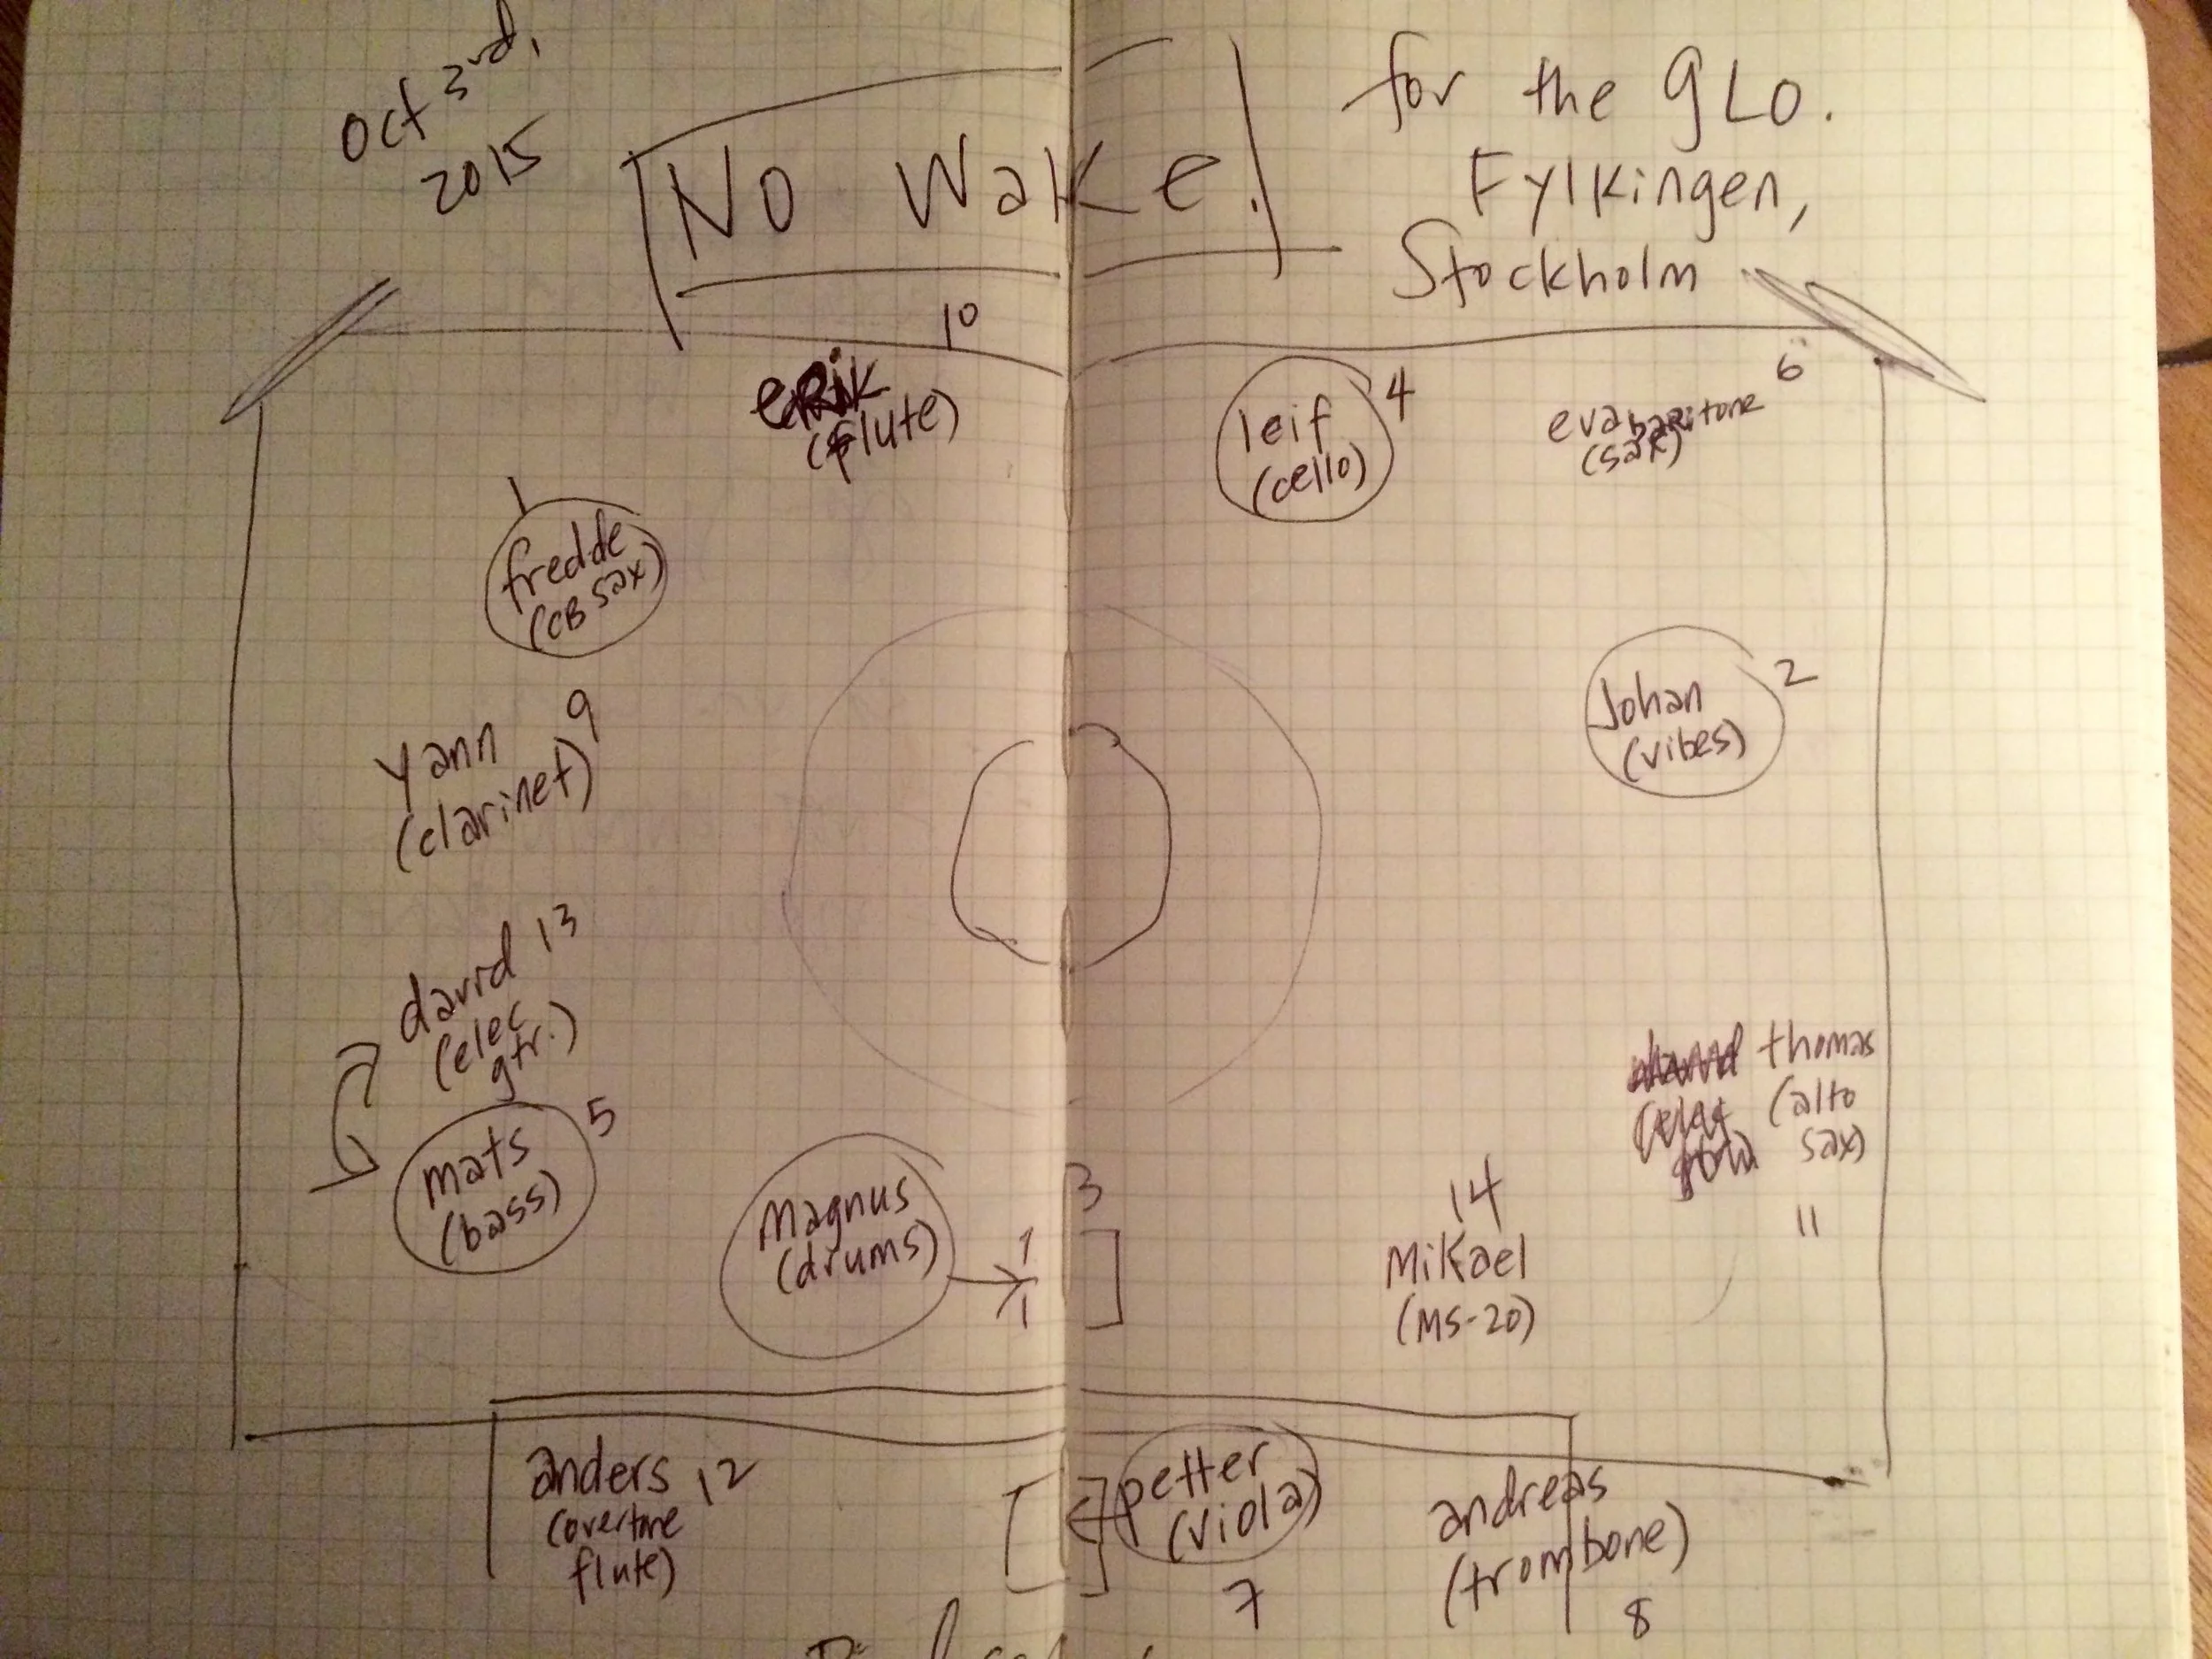 oct 3rd,
2015
No Wake.
for the gLo.
Fylkingen,
Stockholm
10
erik
(flute)
leif 4
(cello)
eva baritone 6
(sax)
1
fredde
(CB sax)
Johan 2
(vibes)
yann 9
(clarinet)
david 13
(elec
gtr.)
thomas
(alto
sax)
11
mats 5
(bass)
magnus
(drums)
3
14
Mikael
(MS-20)
anders 12
(overtone
flute)
petter
(viola)
7
andreas
(trombone)
8